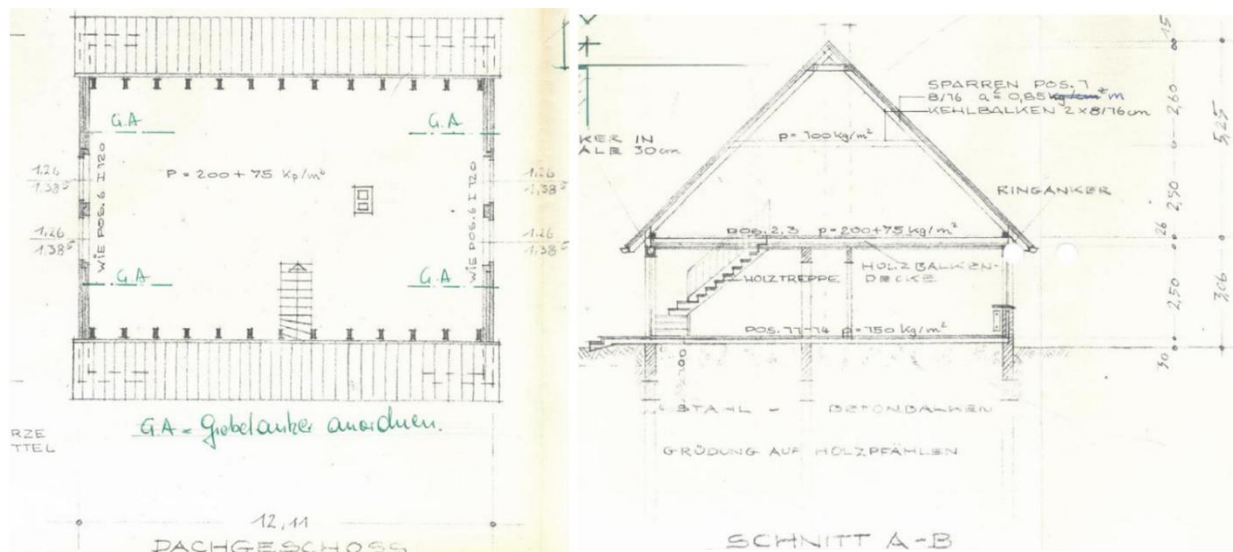 G.A
G.A
P = 200 + 75 Kp/m²
1.26
1.38⁵
1.26
1.38⁵
WIE POS. 6 I 120
WIE POS. 6 I 120
1.26
1.38⁵
1.26
1.38⁵
G.A
G.A
G.A = Giebelanker anordnen.
RZE
TTEL
12,11
DACHGESCHOSS
KER IN
ALE 30cm
SPARREN POS. 1
8/16 a = 0,85 m
KEHLBALKEN 2 x 8/16cm
p = 100 kg/m²
RINGANKER
POS. 2,3 p = 200+75 kg/m²
HOLZTREPPE
HOLZBALKEN-
DECKE
POS. 11-14 p = 150 kg/m²
STAHL - BETONBALKEN
GRÜDUNG AUF HOLZPFÄHLEN
15
2,60
5,25
2,50
26
2,50
3,06
30
SCHNITT A-B